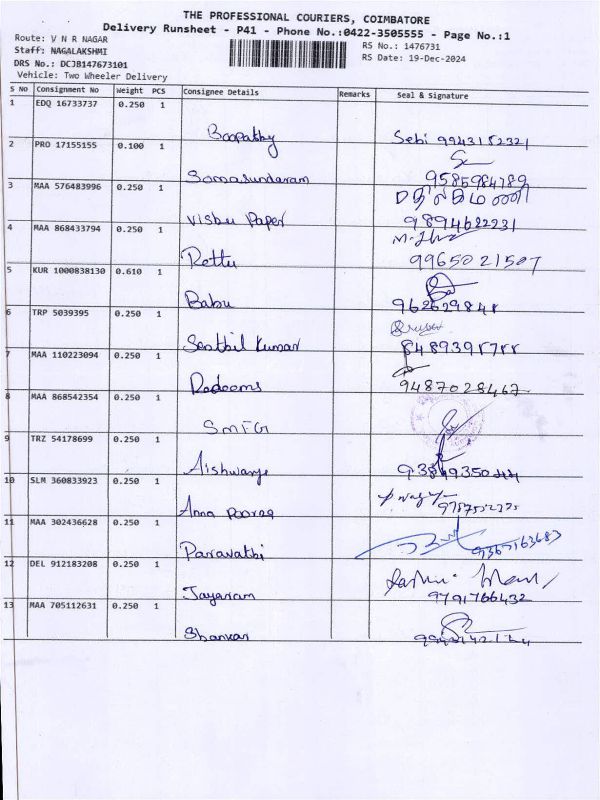 THE PROFESSIONAL COURIERS, COIMBATORE
Delivery Runsheet - P41 - Phone No.:0422-3505555 - Page No.:1
Route: V N R NAGAR
Staff: NAGALAKSHMI
DRS No.: DCJB147673101
Vehicle: Two Wheeler Delivery
RS No.: 1476731
RS Date: 19-Dec-2024
S No Consignment No Weight PCS Consignee Details Remarks Seal & Signature
1 EDQ 16733737 0.250 1
Boopathy Sebi 9943152321
2 PRO 17155155 0.100 1
Somasundaram 9585984789
3 MAA 576483996 0.250 1
Visbu Paper 9894622231
4 MAA 868433794 0.250 1
Rettu 9965021507
5 KUR 1000838130 0.610 1
Babu
6 TRP 5039395 0.250 1
Senthil Kumar
7 MAA 110223094 0.250 1
9487028467
8 MAA 868542354 0.250 1
SMFG
9 TRZ 54178699 0.250 1
Aishwarya
10 SLM 360833923 0.250 1
Anna Poorna
11 MAA 302436628 0.250 1
Paravathi 9367163683
12 DEL 912183208 0.250 1
Jayaram 9791766432
13 MAA 705112631 0.250 1
Shankar